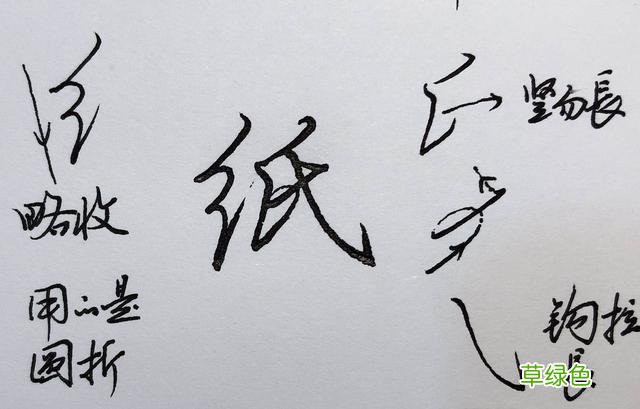 纸
略收
用的是
圆折
竖勿長
钩拉
長
草绿色